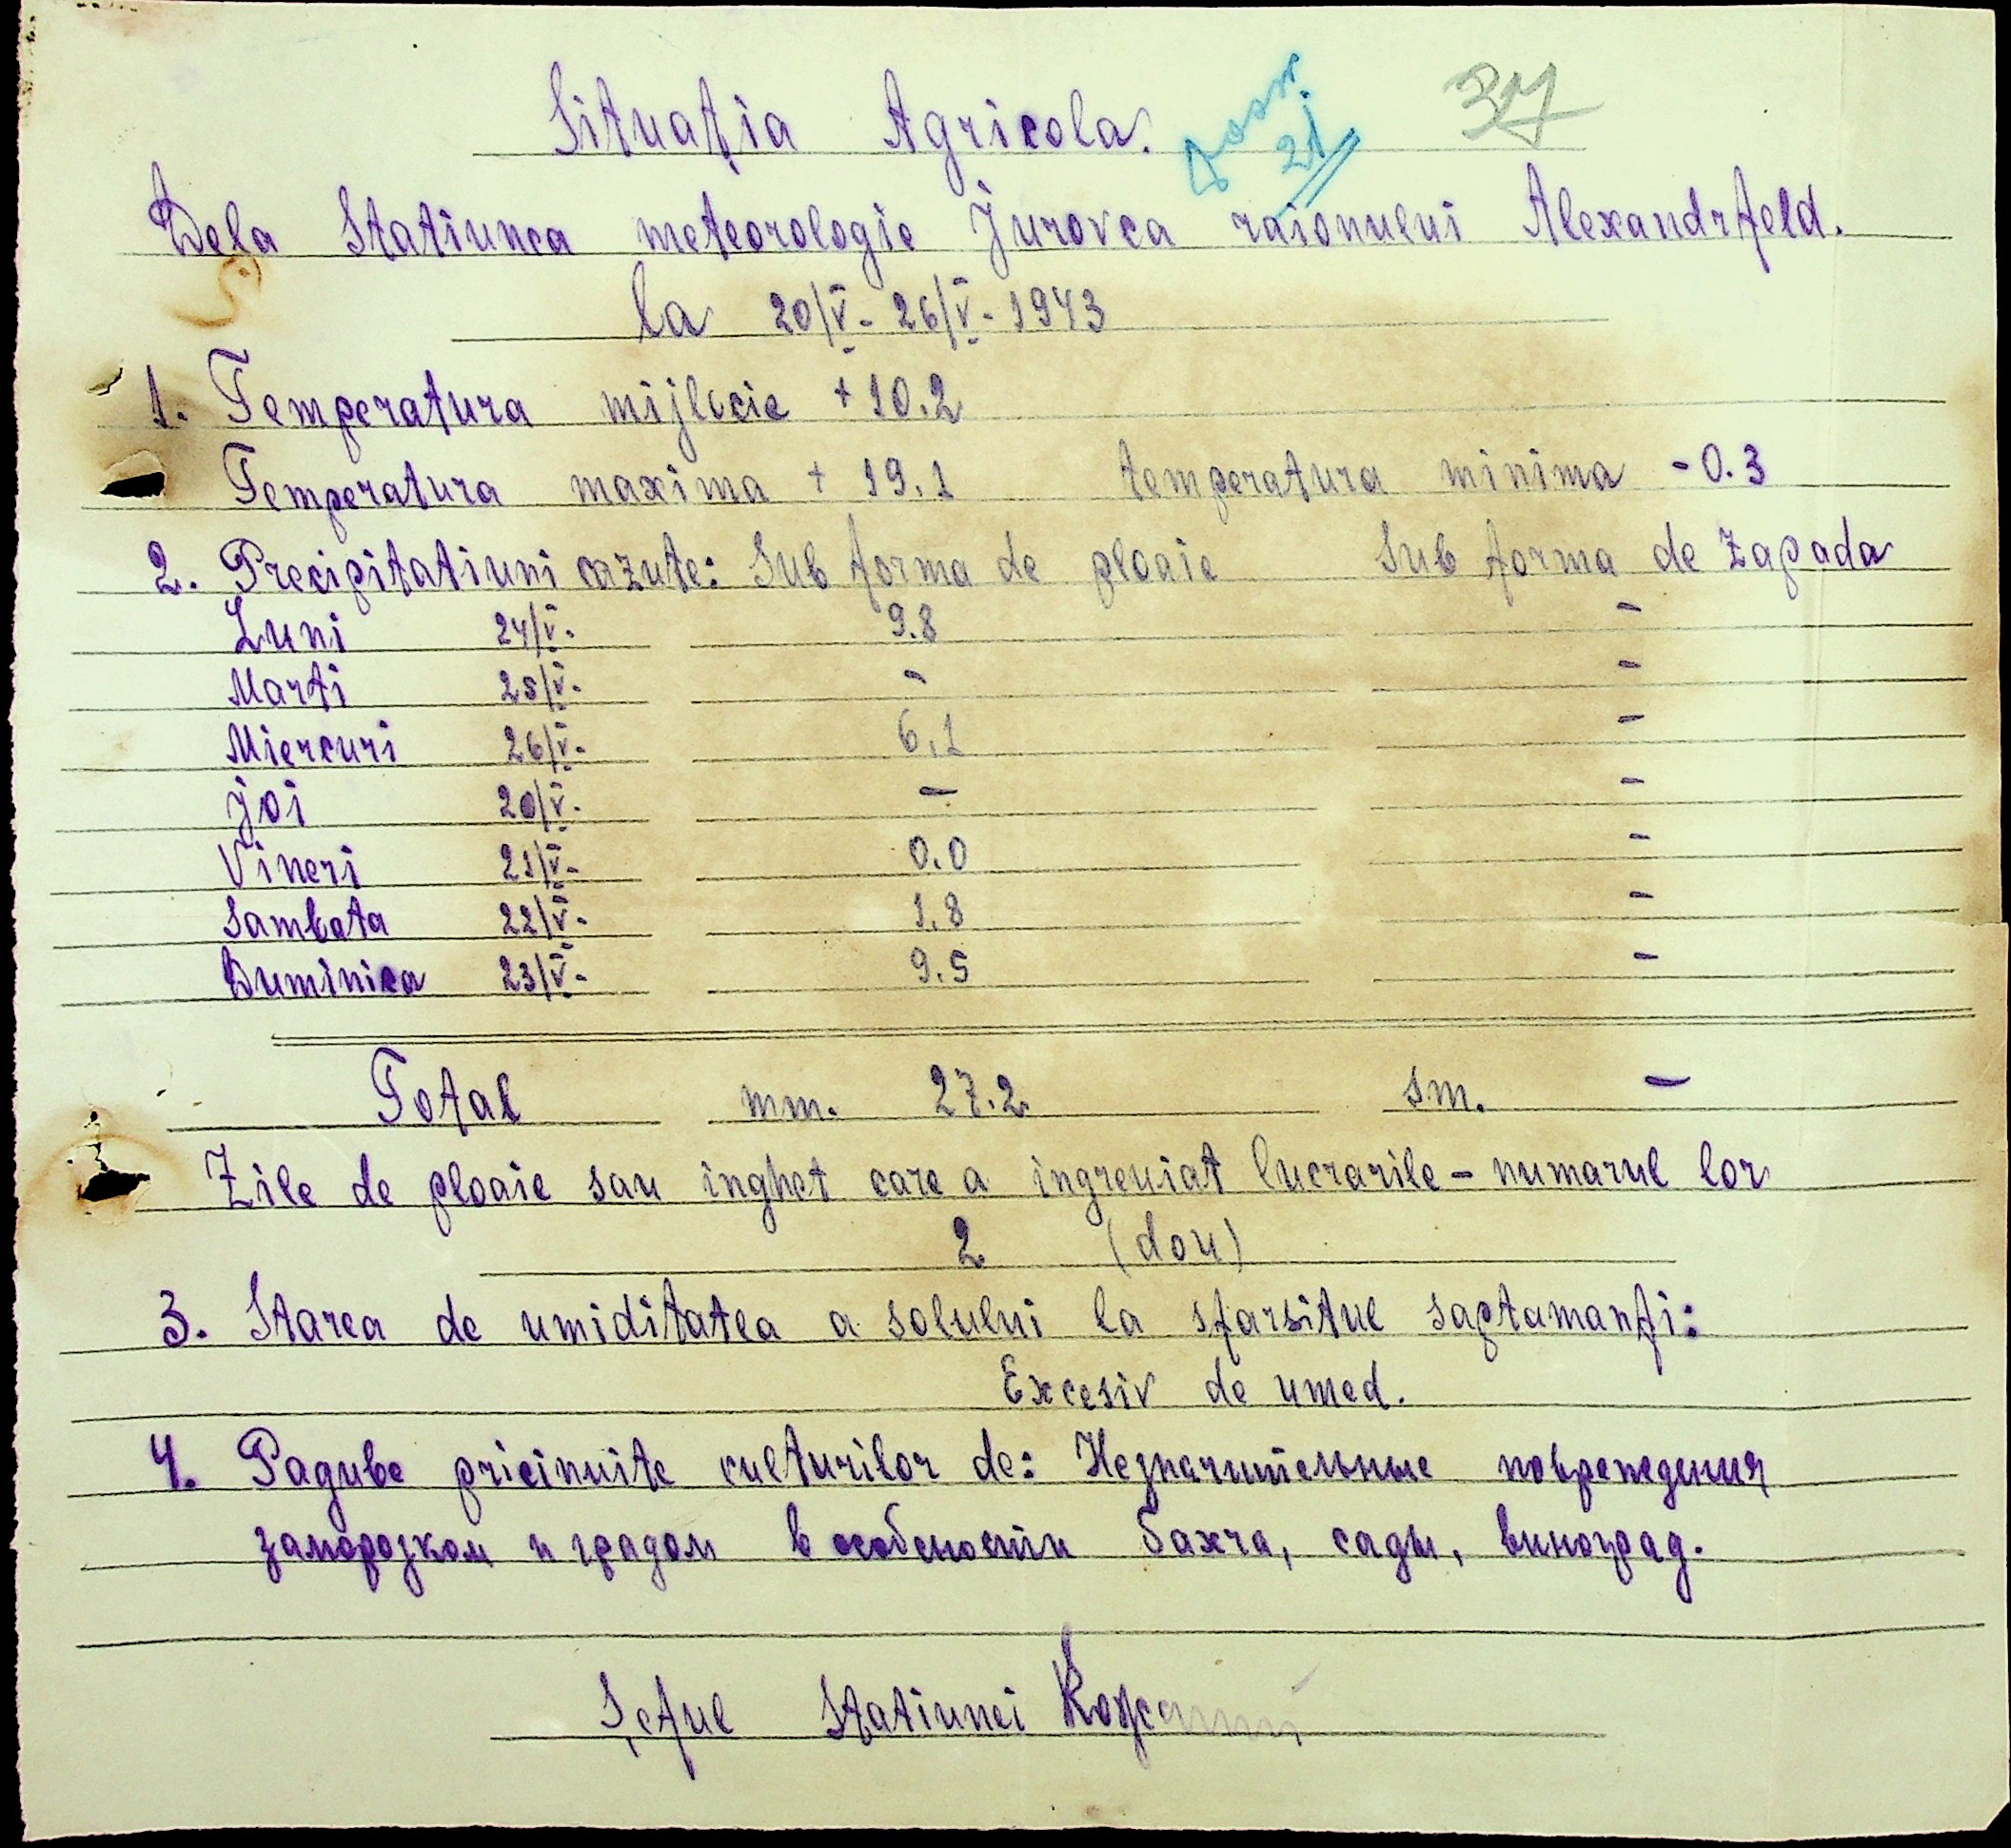 Situaţia Agricola. Dosar 21 37
Dela Statiunea meteorologie Jurovca raionului Alexandrfeld.
la 20/V - 26/V - 1943
1. Temperatura mijlocie +10.2
Temperatura maxima + 19.1 temperatura minima -0.3
2. Precipitatiuni cazute: Sub forma de ploaie Sub forma de zapada
Luni 24/V. 9.8 -
Marti 25/V. - -
Miercuri 26/V. 6.1 -
Joi 20/V. - -
Vineri 21/V. 0.0 -
Sambata 22/V. 1.8 -
Duminica 23/V. 9.5 -
Total mm. 27.2 sm. -
Zile de ploaie sau inghet care a ingreuiat lucrarile - numarul lor
2 (dou)
3. Starea de umiditatea a solului la sfarsitul saptamanţi:
Excesiv de umed.
4. Pagube pricinuite culturilor de: Незначительные повреждения
заморозком и градом в особенности бахча, сады, виноград.
Şeful Statiunei